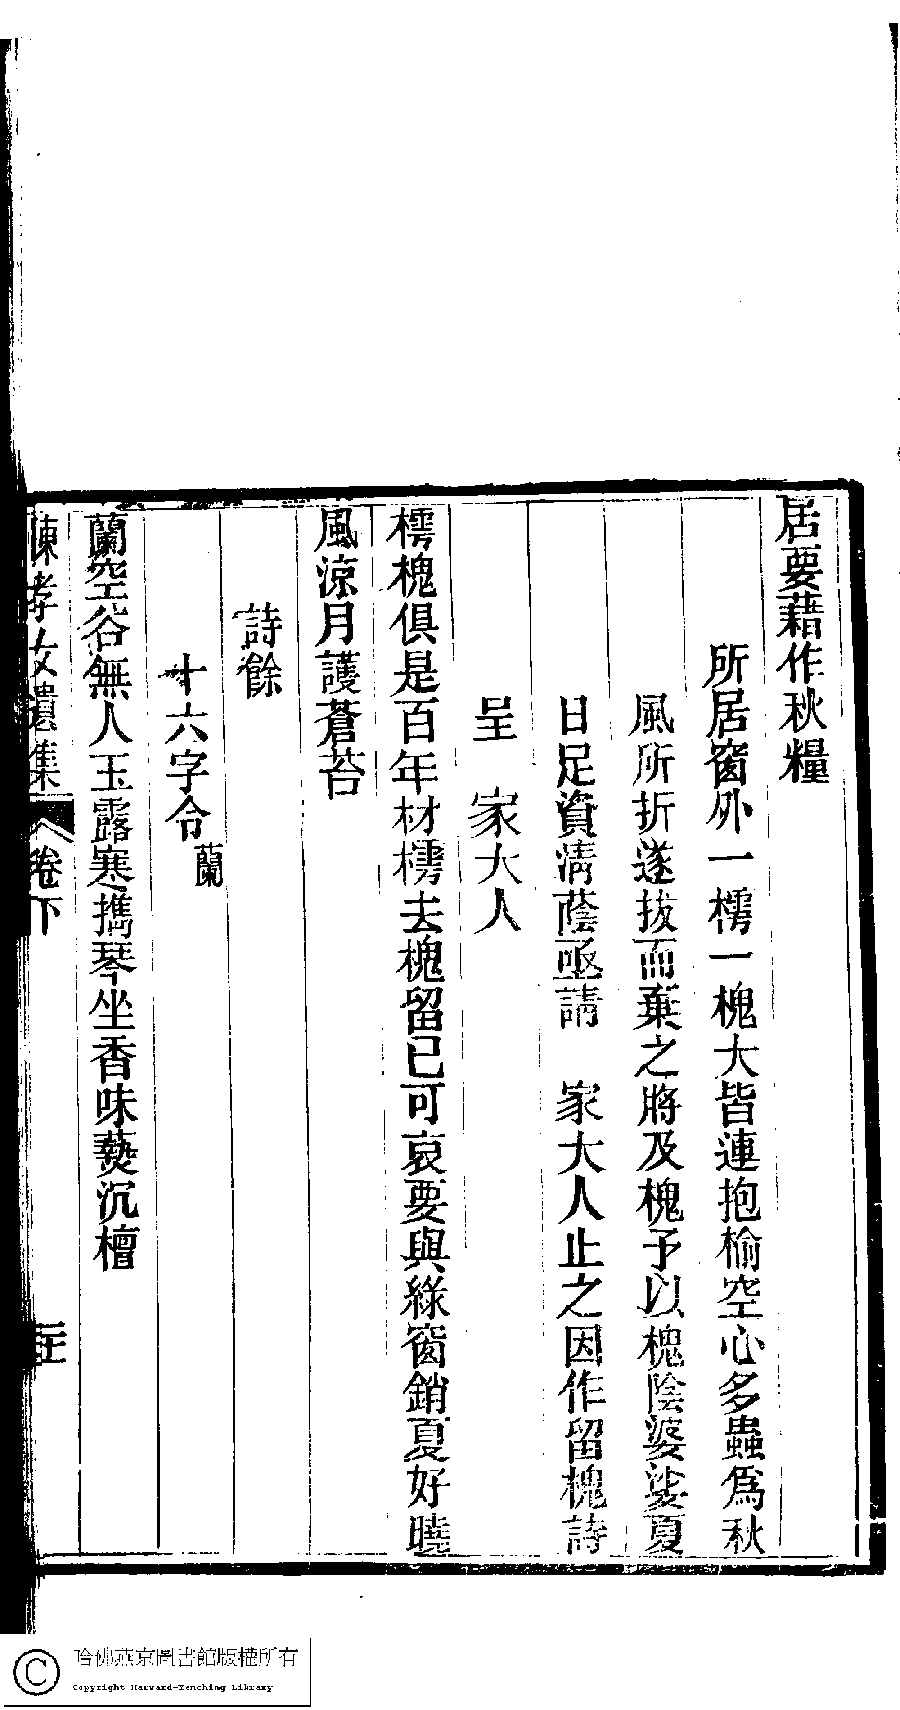 居要藉作秋糧
所居窗外一樗一槐大皆連抱榆空心多蟲爲秋
風所折遂拔而棄之將及槐予以槐陰婆娑夏
日足資清蔭亟請　家大人止之因作留槐詩
呈　家大人
樗槐俱是百年材樗去槐留已可哀要與綠窗銷夏好曉
風涼月護蒼苔
詩餘
十六字令 蘭
蘭空谷無人玉露寒攜琴坐香味爇沉檀
陳孝女遺集
卷下
哈佛燕京圖書館版權所有
Copyright Harvard-Yenching Library